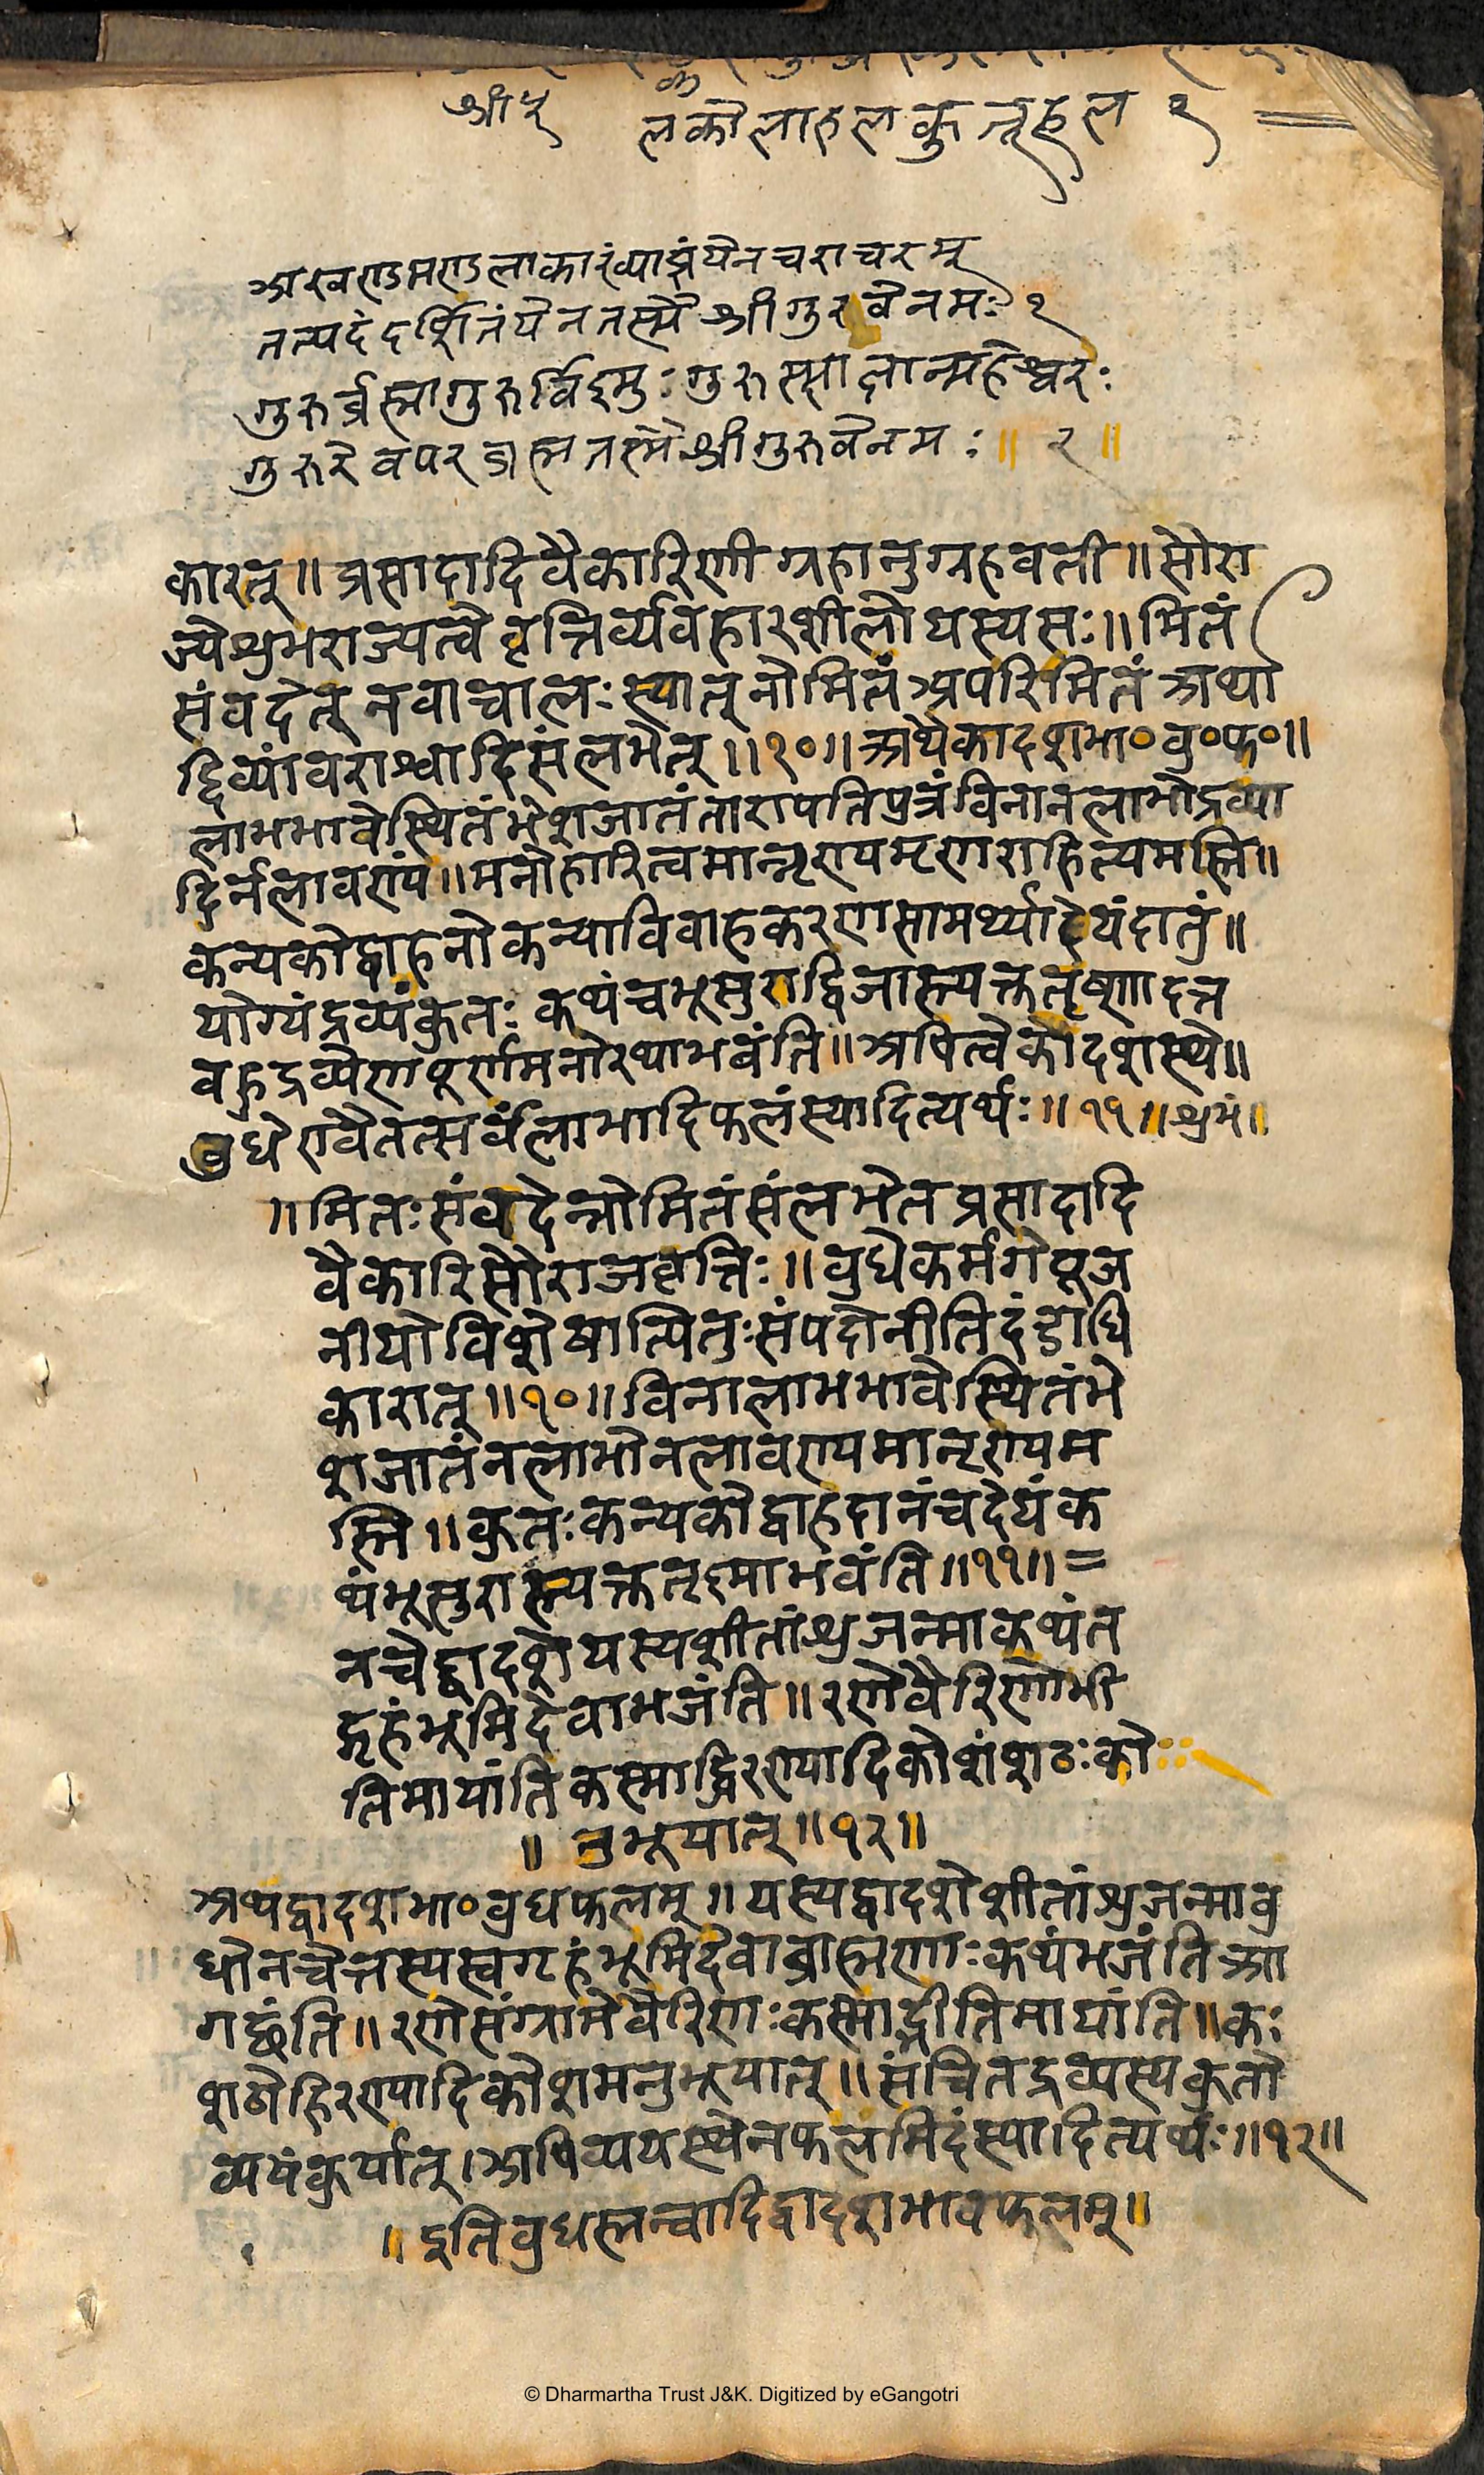 श्री५
लकोलाहलकुतूहल १
अखण्डमण्डलाकारंव्याप्तंयेनचराचरम्
तत्पदंदर्शितंयेनतस्मैश्रीगुरवेनमः १
गुरुर्ब्रह्मागुरुर्विष्णुः गुरुस्साक्षान्महेश्वरः
गुरुरेवपरब्रह्मतस्मैश्रीगुरुवेनमः ॥ २ ॥
कारत् ॥ प्रसादादिवैकारिणी ग्रहानुग्रहवती ॥ सौरा
ज्येशुभराज्यत्वे वृत्तिर्व्यवहारशीलो यस्यसः ॥ मितं
संवदेत् नवाचालः स्यात् नोमितं अपरिमितं अथा
द्दिव्यांवराश्वादिसंलभेत् ॥१०॥ अथैकादशभा० बु० फ० ॥
लाभभावेस्थितंभेशजातंतारापतिपुत्रंविनानलाभोद्रव्या
दिर्नलावण्यं ॥ मनोहारित्वमानृण्यमृणराहित्यमस्ति ॥
कन्यकोद्वाहनो कन्याविवाहकरणसामर्थ्यादेयंदातुं ॥
योग्यंद्रव्यंकुतः कथंचभूसुराद्विजास्त्यक्ततृष्णादत्त
बहुद्रव्येणपूर्णमनोरथाभवंति ॥ अपित्वेकादशस्थे ॥
बुधेएवैतत्सर्वंलाभादिफलंस्यादित्यर्थः ॥ ११ ॥ शुभं ॥
॥ मितःसंवदेन्नोमितंसंलभेतप्रसादादि
वैकारिसौराजवृत्तिः ॥ बुधेकर्मगेपूज
नीयोविशेषात्पितुःसंपदोनीतिदंडाधि
कारात् ॥१०॥ विनालाभभावेस्थितंभे
शजातंनलाभोनलावण्यमानृण्यम
स्ति ॥ कुतःकन्यकोद्वाहदानंचदेयंक
थंभूसुरास्त्यक्ततृष्णाभवंति ॥११॥ =
नचेद्द्वादशेयस्यशीतांशुजन्माकथंत
द्गृहंभूमिदेवाभजंति ॥ रणेवैरिणोभी
तिमायांतिकस्माद्धिरण्यादिकोशंशठःको
॥ नुभूयात् ॥१२॥
अथद्वादशभा० बुधफलम् ॥ यस्यद्वादशेशीतांशुजन्माबु
धोनचेत्तस्यस्वगृहंभूमिदेवाब्राह्मणाःकथंभजंतिआ
गच्छंति ॥ रणेसंग्रामेवैरिणःकस्माद्भीतिमायांति ॥ कः
शठोहिरण्यादिकोशमनुभूयात् ॥ संचितद्रव्यस्यकुतो
व्ययंकुर्यात् । अपिव्ययस्थेनफलमिदंस्यादित्यर्थः ॥१२॥
॥ इतिबुधस्तन्वादिद्वादशभावफलम् ॥
© Dharmartha Trust J&K. Digitized by eGangotri